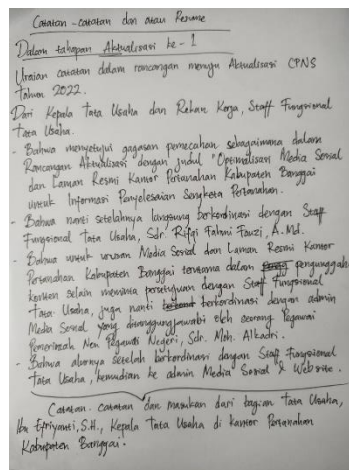 Catatan-catatan dan atau Resume
Dalam tahapan Aktualisasi ke-1
Uraian catatan dalam rancangan menuju Aktualisasi CPNS
Tahun 2022.
Dari Kepala Tata Usaha dan Rekan Kerja, Staff Fungsional
Tata Usaha.
- Bahwa menyetujui gagasan pemecahan sebagaimana dalam
Rancangan Aktualisasi dengan judul "Optimalisasi Media Sosial
dan Laman Resmi Kantor Pertanahan Kabupaten Banggai
untuk Informasi Penyelesaian Sengketa Pertanahan.
- Bahwa nanti setelahnya langsung berkordinasi dengan Staff
Fungsional Tata Usaha, Sdr. Rifqi Fahmi Fauzi, A.Md.
- Bahwa untuk urusan Media Sosial dan Laman Resmi Kantor
Pertanahan Kabupaten Banggai terutama dalam pengunggah
konten selain meminta persetujuan dengan Staff Fungsional
Tata Usaha, juga nanti berkordinasi dengan admin
Media Sosial yang ditanggungjawabi oleh seorang Pegawai
Pemerintah Non Pegawai Negeri, Sdr. Moh. Alkadri.
- Bahwa alurnya setelah berkordinasi dengan Staff Fungsional
Tata Usaha, kemudian ke admin Media Sosial & Website.
Catatan-catatan dan masukan dari bagian Tata Usaha,
Ibu Epriyanti, S.H., Kepala Tata Usaha di Kantor Pertanahan
Kabupaten Banggai.